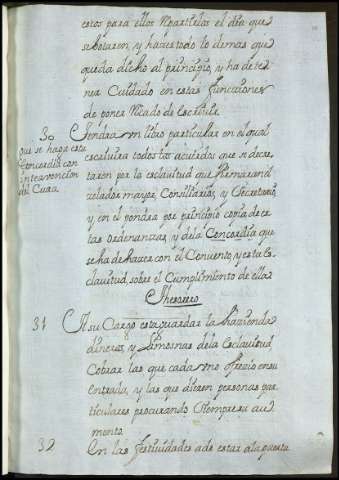 ceros para ellos Repartirlos el dia que
se botaren, y hacer todo lo demas que
queda dicho al principio, y ha de te
ner Cuidado en estas funciones
de poner Recado de escribir.
30
que se haga esta
Concordia con
intervencion
del Cura.
Tendra un libro particular en el qual
escrivira todos los acuerdos que se decre
taren por la esclavitud que firmaran
celador mayor, Consiliarios, y Secretario
y en el pondra por principio copia de es
tas ordenanzas, y de la Concordia que
se ha de hacer con el Convento, y esta Es
clavitud, sobre el Cumplimiento de ellas
Thesorero
31
A su Cargo esta guardar la hazienda
dineros, y limosnas de la Esclavitud
Cobrar las que cada uno ofrecio en su
entrada, y las que dieren personas par
ticulares procurando siempre su au
mento.
32
En las festividades ade estar a la puerta